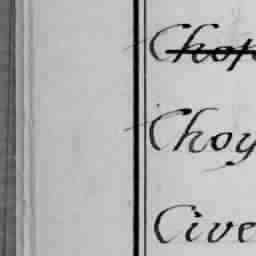 Chop
Choy
Cive